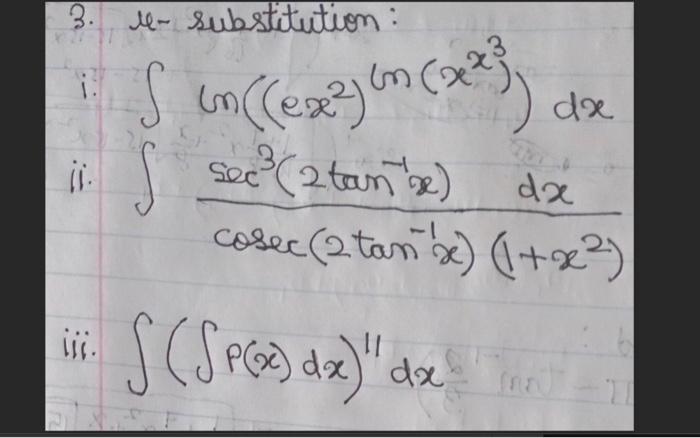 3. u- substitution:
i. ∫ ln((ex²)^ln(x^x³)) dx
ii. ∫ sec³(2tan⁻¹x) dx
cosec(2tan⁻¹x) (1+x²)
iii. ∫ (∫ P(x) dx)'' dx